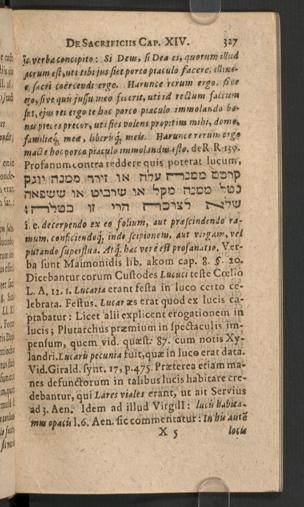 DE SACRIFICIIS CAP. XIV. 327
sic verba concipito: Si Deus, si Dea es, quorum illud
sacrum est, uti tibi jus siet porco piaculo facere, illiusce
sacri coërcendi ergo. Harunce rerum ergo. sive
ego, sive quis jussu meo fecerit, uti id rectum factum
sit, ejus rei ergo te hoc porco piaculo immolando bo-
nas preces precor, uti sies volens propitius mihi, domo,
familiæq, meæ, liberisq, meis. Harunce rerum ergo
macte hoc porco piaculo immolando esto. de R R 139.
Profanum contra reddere quis poterat lucum,
קרסם ממנה עלה או זירד ממנה יונק
נטל ממנה מקל או שרביט או ששפאה
שלא לצרכה הרי זו בטלה:
i. e. decerpendo ex eo folium, aut præscindendo ra-
mum, conficiendoq, inde scipionem, aut virgam, vel
putando superflua. Atq, hac vere est profanatio, Ver-
ba sunt Maimonidis lib. akom cap. 8. §. 20.
Dicebantur eorum Custodes Lucuci teste Cœlio
L. A, 12. 1. Lucaria erant festa in luco certo ce-
lebrata. Festus. Lucar æs erat quod ex lucis ca-
ptabatur: Licet alii explicent erogationem in
lucis; Plutarchus præmium in spectaculis im-
pensum, quem vid. quæst: 87. cum notis Xy-
landri. Lucaris pecunia fuit, quæ in luco erat data.
Vid. Girald. synt. 17, p. 475. Præterea etiam ma-
nes defunctorum in talibus lucis habitare cre-
debantur, qui Lares viales erant, ut ait Servius
ad 3. Aen. Idem ad illud Virgilî: lucis habita-
mus opacis l. 6. Aen. sic commentatur: In his autē
X 5 locis